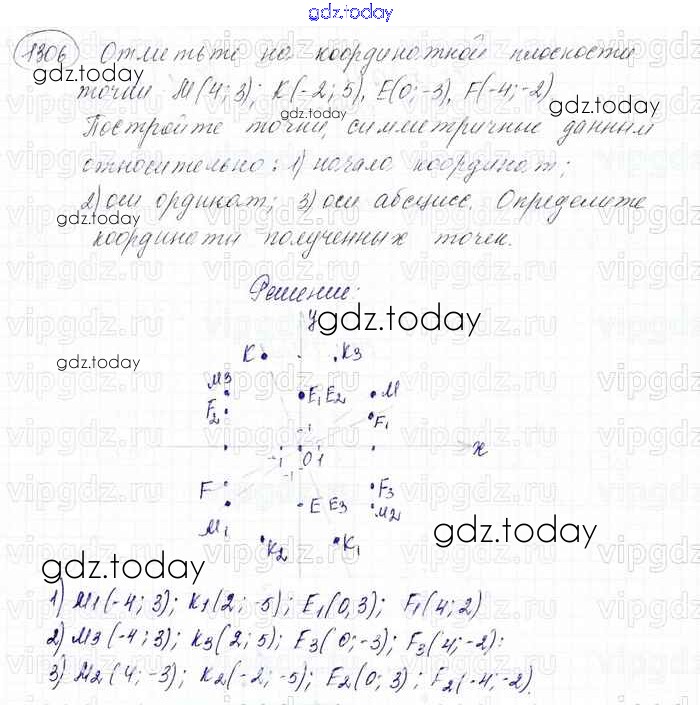 gdz.today
1306 Отметьте на координатной плоскости
gdz.today
точки M(4; 3); K(-2; 5), E(0; -3), F(-4; -2)
gdz.today
Постройте точки, симметричные данным
относительно: 1) начала координат;
2) оси ординат; 3) оси абсцисс. Определите
gdz.today
координаты полученных точек.
Решение:
y
gdz.today
K K3
gdz.today
M3 E1 E2 M
F2 F1
1
-1 0 1 x
-1
F F3
M1 E E3 M2
K2 K1
gdz.today
gdz.today
1) M1(-4; 3); K1(2; -5); E1(0,3); F1(4; 2)
2) M3(-4; 3); K3(2; 5); E3(0; -3); F3(4; -2):
3) M2(4; -3); K2(-2; -5); E2(0; 3); F2(-4; -2).
vipgdz.ru